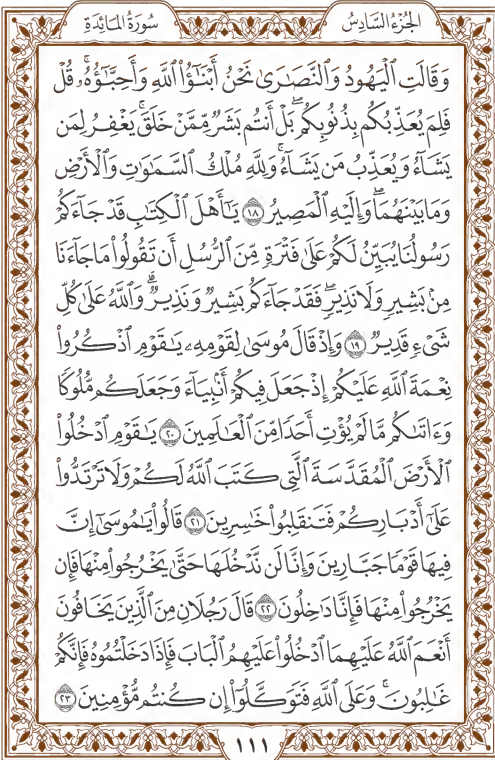 الجُزْءُ السَّادِسُ سُورَةُ المَائِدَةِ
وَقَالَتِ ٱلۡيَهُودُ وَٱلنَّصَٰرَىٰ نَحۡنُ أَبۡنَٰٓؤُاْ ٱللَّهِ وَأَحِبَّٰٓؤُهُۥۚ قُلۡ
فَلِمَ يُعَذِّبُكُم بِذُنُوبِكُمۖ بَلۡ أَنتُم بَشَرٞ مِّمَّنۡ خَلَقَۚ يَغۡفِرُ لِمَن
يَشَآءُ وَيُعَذِّبُ مَن يَشَآءُۚ وَلِلَّهِ مُلۡكُ ٱلسَّمَٰوَٰتِ وَٱلۡأَرۡضِ
وَمَا بَيۡنَهُمَاۖ وَإِلَيۡهِ ٱلۡمَصِيرُ ١٨ يَٰٓأَهۡلَ ٱلۡكِتَٰبِ قَدۡ جَآءَكُمۡ
رَسُولُنَا يُبَيِّنُ لَكُمۡ عَلَىٰ فَتۡرَةٖ مِّنَ ٱلرُّسُلِ أَن تَقُولُواْ مَا جَآءَنَا
مِنۢ بَشِيرٖ وَلَا نَذِيرٖۖ فَقَدۡ جَآءَكُم بَشِيرٞ وَنَذِيرٞۗ وَٱللَّهُ عَلَىٰ كُلِّ
شَيۡءٖ قَدِيرٞ ١٩ وَإِذۡ قَالَ مُوسَىٰ لِقَوۡمِهِۦ يَٰقَوۡمِ ٱذۡكُرُواْ
نِعۡمَةَ ٱللَّهِ عَلَيۡكُمۡ إِذۡ جَعَلَ فِيكُمۡ أَنۢبِيَآءَ وَجَعَلَكُم مُّلُوكٗا
وَءَاتَىٰكُم مَّا لَمۡ يُؤۡتِ أَحَدٗا مِّنَ ٱلۡعَٰلَمِينَ ٢٠ يَٰقَوۡمِ ٱدۡخُلُواْ
ٱلۡأَرۡضَ ٱلۡمُقَدَّسَةَ ٱلَّتِي كَتَبَ ٱللَّهُ لَكُمۡ وَلَا تَرۡتَدُّواْ
عَلَىٰٓ أَدۡبَارِكُمۡ فَتَنقَلِبُواْ خَٰسِرِينَ ٢١ قَالُواْ يَٰمُوسَىٰٓ إِنَّ
فِيهَا قَوۡمٗا جَبَّارِينَ وَإِنَّا لَن نَّدۡخُلَهَا حَتَّىٰ يَخۡرُجُواْ مِنۡهَا فَإِن
يَخۡرُجُواْ مِنۡهَا فَإِنَّا دَٰخِلُونَ ٢٢ قَالَ رَجُلَانِ مِنَ ٱلَّذِينَ يَخَافُونَ
أَنۡعَمَ ٱللَّهُ عَلَيۡهِمَا ٱدۡخُلُواْ عَلَيۡهِمُ ٱلۡبَابَ فَإِذَا دَخَلۡتُمُوهُ فَإِنَّكُمۡ
غَٰلِبُونَۚ وَعَلَى ٱللَّهِ فَتَوَكَّلُوٓاْ إِن كُنتُم مُّؤۡمِنِينَ ٢٣
١١١